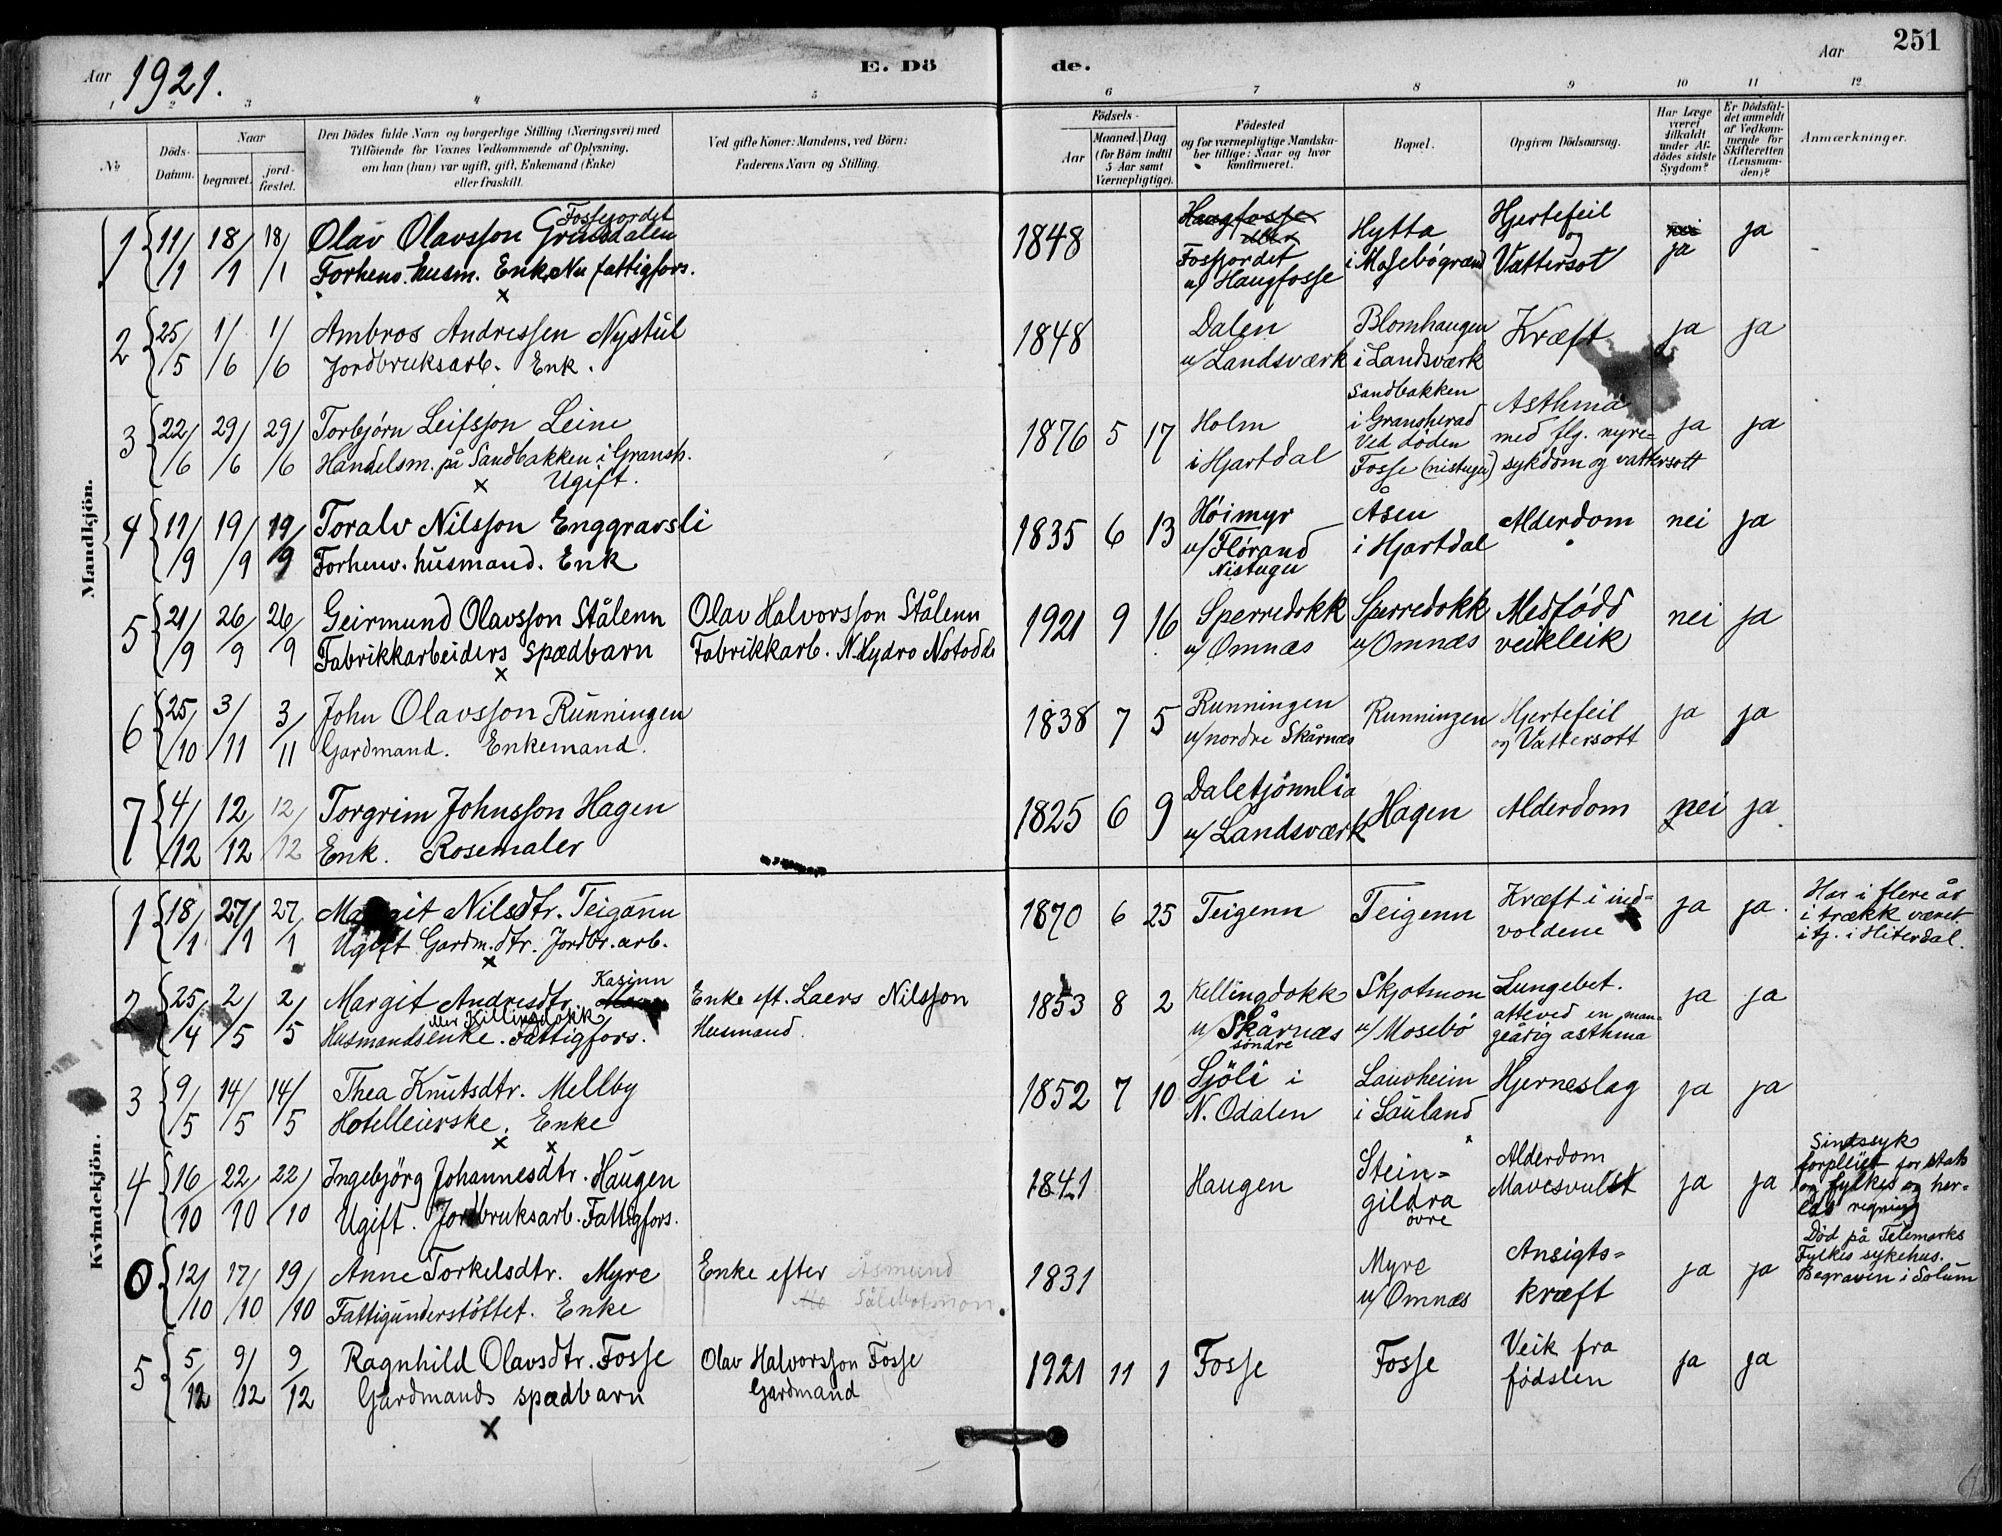 251
Aar 1921.
E. Dö
de.
Aar
1 2 3 4 5 6 7 8 9 10 11 12
No
Döds-
Datum.
Naar
begravet.
jord-
fæstet.
Den Dödes fulde Navn og borgerlige Stilling (Næringsvei) med
Tilföiende for Voxnes Vedkommende af Oplysning,
om han (hun) var ugift, gift, Enkemand (Enke)
eller fraskilt.
Ved gifte Koner: Mandens, ved Börn:
Faderens Navn og Stilling.
Födsels-
Aar
Maaned. Dag
(for Börn indtil
5 Aar samt
Værnepligtige).
Födested
og for værnepligtige Mandska-
ber tillige: Naar og hvor
konfirmeret.
Bopæl.
Opgiven Dödsaarsag.
Har Læge
været
tilkaldt
under Af-
dödes sidste
Sygdom?
Er Dödsfal-
det anmeldt
af Vedkom-
mende for
Skifteretten
(Lensman-
den)?
Anmærkninger.
Mandkjön.
1 11/1 18/1 18/1
Fossejordet
Olav Olavsson Grinsdalen
Forhenv. husm. Enk. Nu fattigfors.
x
1848
Haugfosse
Fosjordet
u/ Haugfosse
Hytta
i Mosebøgrend
Hjertefeil
og
Vattersot
nei
ja
ja
2 25/5 1/6 1/6
Ambros Andressen Nystul
Jordbruksarb. Enk.
1848
Dalen
u/ Landsværk
Blomhaugen
i Landsværk
Kræft
ja ja
3 22/6 29/6 29/6
Torbjørn Leifsson Leine
Handelsm. på Sandbakken i Gransh.
x Ugift.
1876 5 17
Holm
i Hjartdal
Sandbakken
i Gransherad
Ved døden
Fosse (nistuga)
Asthma
med flg. nyre-
sykdom og vattersott
ja ja
4 11/9 19/9 19/9
Toralv Nilsson Enggravsli
Forhenv. husmand. Enk
1835 6 13
Høimyr
u/ Flørand
Nistugu
Åsen
i Hjartdal
Alderdom
nei ja
5 21/9 26/9 26/9
Geirmund Olavsson Stålenn
Fabrikkarbeiders spædbarn
x
Olav Halvorsson Stålenn
Fabrikkarb. N. Hydro Notodde
1921 9 16
Sperredokk
u/ Omnæs
Sperredokk
u/ Omnæs
Medfødd
veikleik
nei ja
6 25/10 3/11 3/11
John Olavsson Runningen
Gardmand. Enkemand.
1838 7 5
Runningen
u/ nordre Skårnæs
Runningen
Hjertefeil
og Vattersott
ja ja
7 4/12 12/12 12/12
Torgrim Johnsson Hagen
Enk. Rosemaler
1825 6 9
Daletjönnlia
u/ Landsværk
Hagen
Alderdom
nei ja
Kvindekjön.
1 18/1 27/1 27/1
Margit Nilsdtr. Teigann
Ugift Gardm. dtr. Jordbr. arb.
x
1870 6 25
Teigenn
Teigenn
Kræft i ind-
voldene
ja ja.
Har i flere år
i trækk været
i tj. i Hiterdal.
2 25/4 2/5 2/5
Kasinn
Margit Andresdtr.
eller Killingdokk
Husmandsenke. Fattigfors.
Enke eft. Laers Nilsson
Husmand.
1853 8 2
Kellingdokk
u/ Skårnæs
söndre
Skjotmon
u/ Mosebö
Lungebet.
atteved en man-
geårig asthma
ja ja
3 9/5 14/5 14/5
Thea Knutsdtr. Mellby
Hotelleierske. Enke
x x
1852 7 10
Sjöli i
N. Odalen
Lauvheim
i Sauland
Hjerneslag
ja ja
4 16/10 22/10 22/10
Ingebjörg Johannesdtr. Haugen
Ugift. Jordbruksarb. Fattigfors.
1841
Haugen
Stein-
gildra
övre
Alderdom
Mavesvulst
ja ja
Sindssyk
forpleiet for stats
og fylkes og her-
eds regning
0 12/10 17/10 19/10
Anne Torkelsdtr. Myre
Fattigunderstöttet. Enke
Enke efter Åsmund
1831
Myre
u/ Omnæs
Ansigts-
kræft
ja ja
Död på Telemarks
Fylkes sykehus.
Begraven i Solum
5 5/12 9/12 9/12
Ragnhild Olavsdtr. Fosse
Gardmands spædbarn
x
Olav Halvorsson Fosse
Gardmand
1921 11 1
Fosse
Fosse
Veik fra
fødslen
ja ja